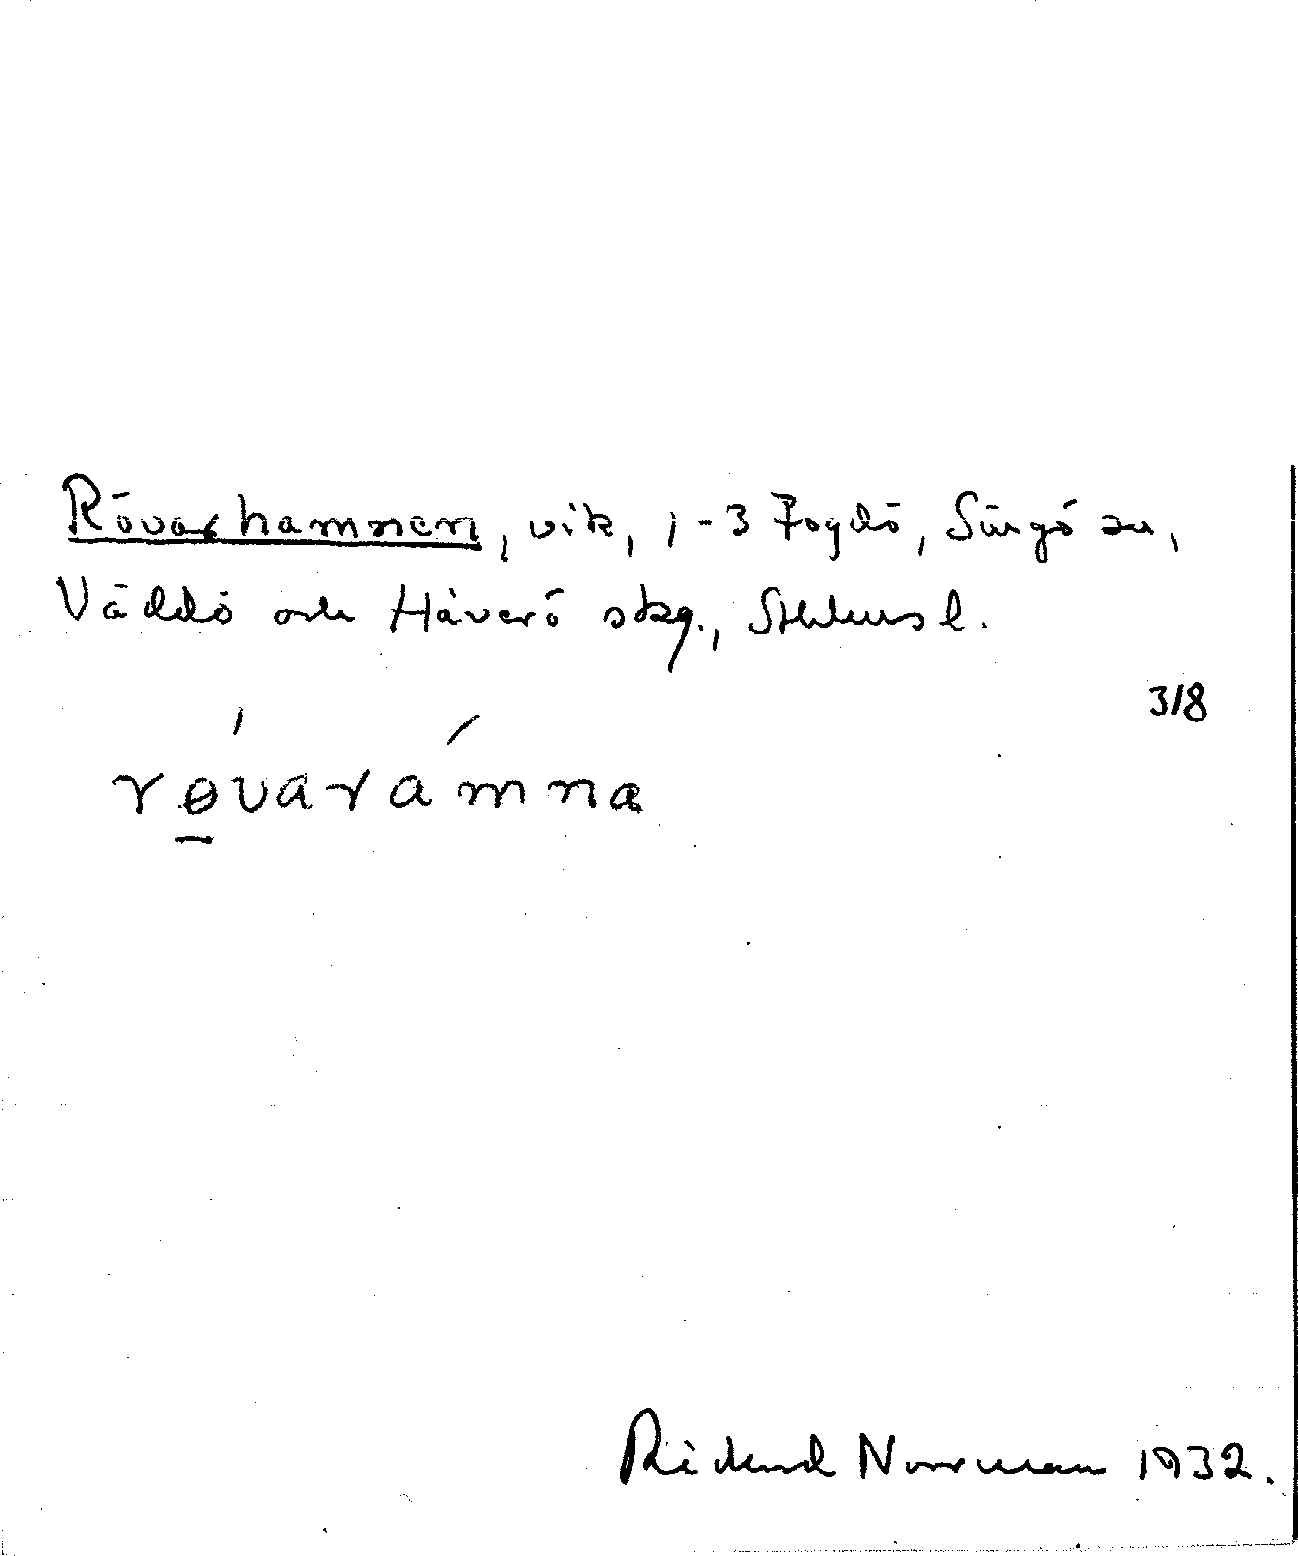 Rövarhamnen, vik, 1-3 Fogdö, Singö sn,
Väddö och Häverö skg., Sthlms l.
3/8
røvarámna
Rickard Norrman 1932.